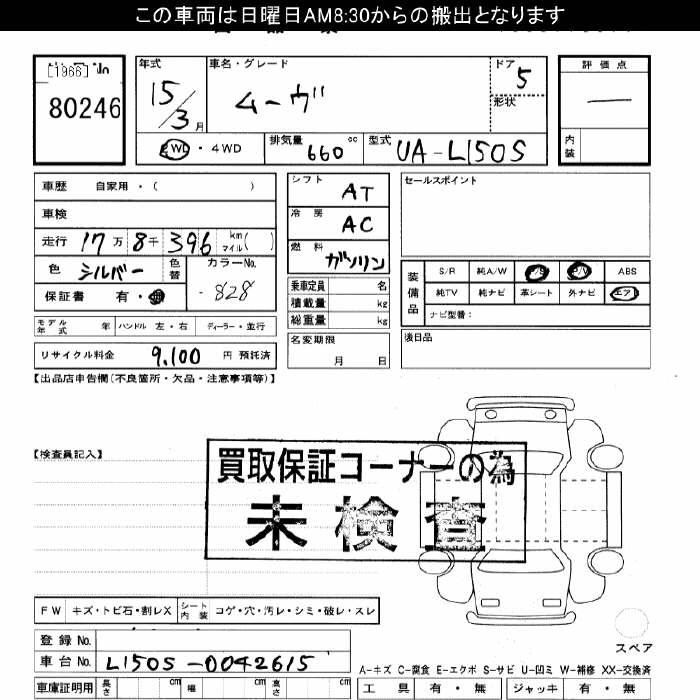 この車両は日曜日AM8:30からの搬出となります
[1966]
80246
年式
15/3月
車名・グレード
ムーヴ
ドア 5
形状
評価点
―
内装
2WD・4WD
排気量 660 cc
型式 UA-L150S
車歴 自家用・( )
車検
走行 17万8千396 km マイル( )
色 シルバー 色替 カラーNo. -828
保証書 有・
モデル年式 年 ハンドル 左・右 ディーラー・並行
リサイクル料金 9,100 円 預託済
シフト AT
冷房 AC
燃料 ガソリン
乗車定員 名
積載量 kg
総重量 kg
名変期限 月 日
セールスポイント
装備品
S/R 純A/W P/S P/W ABS
純TV 純ナビ 革シート 外ナビ エアB
ナビ型番:
後日品
【出品店申告欄(不良箇所・欠品・注意事項等)】
【検査員記入】
買取保証コーナーの為
未検査
FW キズ・トビ石・割レX シート内装 コゲ・穴・汚レ・シミ・破レ・スレ
登録No.
車台No. L150S-0042615
車庫証明用 長さ cm 幅 cm 高さ cm
スペア
A-キズ C-腐食 E-エクボ S-サビ U-凹ミ W-補修 XX-交換済
工具 有・無 ジャッキ 有・無